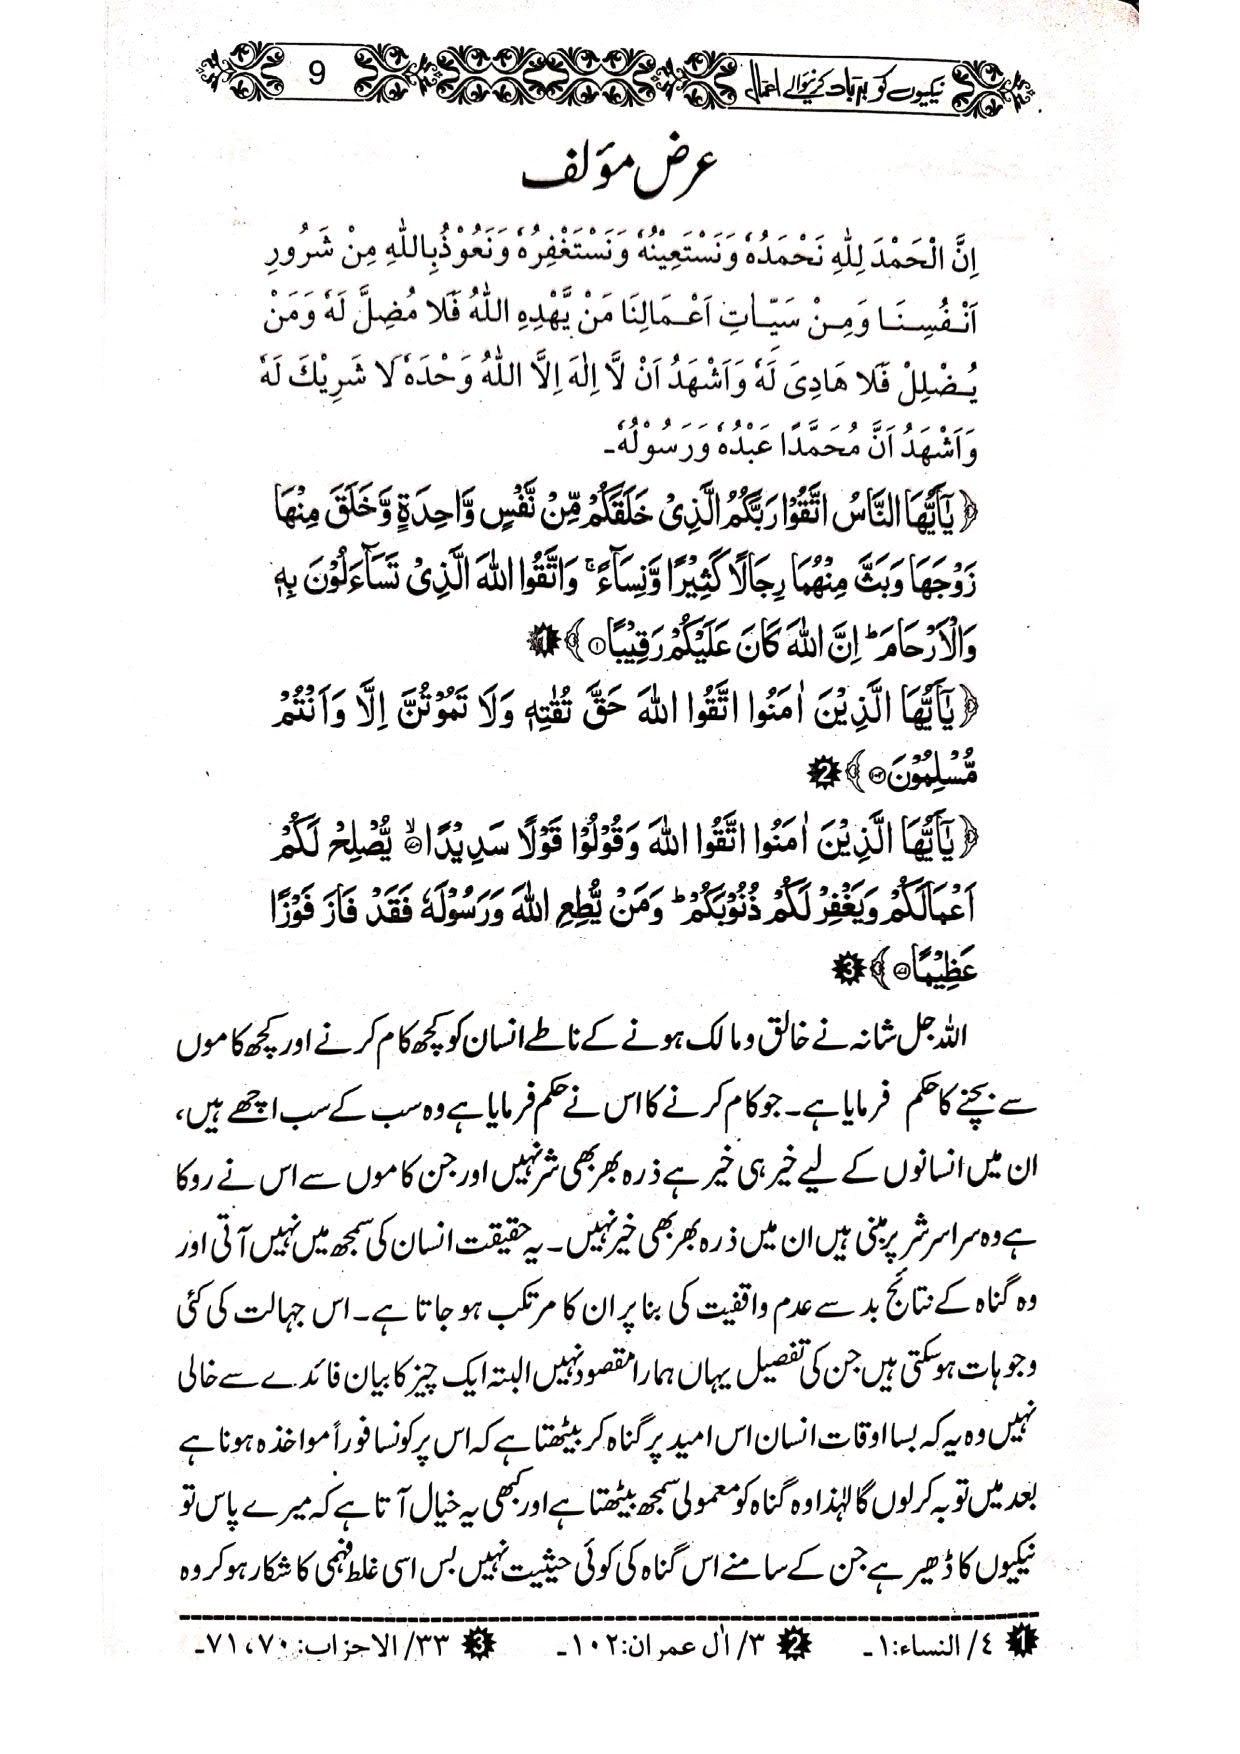 نیکیوں کو برباد کرنیوالے اعمال 9
عرض مؤلف
اِنَّ الْحَمْدَ لِلّٰهِ نَحْمَدُهٗ وَنَسْتَعِيْنُهٗ وَنَسْتَغْفِرُهٗ وَنَعُوْذُبِاللّٰهِ مِنْ شَرُورِ
اَنْفُسِنَا وَمِنْ سَيِّاٰتِ اَعْمَالِنَا مَنْ يَّهْدِهِ اللّٰهُ فَلَا مُضِلَّ لَهٗ وَمَنْ
يُضْلِلْ فَلَا هَادِىَ لَهٗ وَاَشْهَدُ اَنْ لَّا اِلٰهَ اِلَّا اللّٰهُ وَحْدَهٗ لَا شَرِيْكَ لَهٗ
وَاَشْهَدُ اَنَّ مُحَمَّدًا عَبْدُهٗ وَرَسُوْلُهٗ۔
﴿يٰۤاَيُّهَا النَّاسُ اتَّقُوْا رَبَّكُمُ الَّذِىْ خَلَقَكُمْ مِّنْ نَّفْسٍ وَّاحِدَةٍ وَّخَلَقَ مِنْهَا
زَوْجَهَا وَبَثَّ مِنْهُمَا رِجَالًا كَثِيْرًا وَّنِسَآءً ۚ وَاتَّقُوا اللّٰهَ الَّذِىْ تَسَآءَلُوْنَ بِهٖ
وَالْاَرْحَامَ ؕ اِنَّ اللّٰهَ كَانَ عَلَيْكُمْ رَقِيْبًا ۝۱﴾ 1
﴿يٰۤاَيُّهَا الَّذِيْنَ اٰمَنُوا اتَّقُوا اللّٰهَ حَقَّ تُقٰتِهٖ وَلَا تَمُوْتُنَّ اِلَّا وَاَنْتُمْ
مُّسْلِمُوْنَ ۝۱۰۲﴾ 2
﴿يٰۤاَيُّهَا الَّذِيْنَ اٰمَنُوا اتَّقُوا اللّٰهَ وَقُوْلُوْا قَوْلًا سَدِيْدًا ۝۷۰ۙ يُّصْلِحْ لَكُمْ
اَعْمَالَكُمْ وَيَغْفِرْ لَكُمْ ذُنُوْبَكُمْ ؕ وَمَنْ يُّطِعِ اللّٰهَ وَرَسُوْلَهٗ فَقَدْ فَازَ فَوْزًا
عَظِيْمًا ۝۷۱﴾ 3
اللہ جل شانہ نے خالق و مالک ہونے کے ناطے انسان کو کچھ کام کرنے اور کچھ کاموں
سے بچنے کا حکم فرمایا ہے۔ جو کام کرنے کا اس نے حکم فرمایا ہے وہ سب کے سب اچھے ہیں،
ان میں انسانوں کے لیے خیر ہی خیر ہے ذرہ بھر بھی شر نہیں اور جن کاموں سے اس نے روکا
ہے وہ سراسر شر پر مبنی ہیں ان میں ذرہ بھر بھی خیر نہیں۔ یہ حقیقت انسان کی سمجھ میں نہیں آتی اور
وہ گناہ کے نتائج بد سے عدم واقفیت کی بنا پر ان کا مرتکب ہو جاتا ہے۔ اس جہالت کی کئی
وجوہات ہو سکتی ہیں جن کی تفصیل یہاں ہمارا مقصود نہیں البتہ ایک چیز کا بیان فائدے سے خالی
نہیں وہ یہ کہ بسا اوقات انسان اس امید پر گناہ کر بیٹھتا ہے کہ اس پر کونسا فوراً مواخذہ ہونا ہے
بعد میں توبہ کر لوں گا لہٰذا وہ گناہ کو معمولی سمجھ بیٹھتا ہے اور کبھی یہ خیال آتا ہے کہ میرے پاس تو
نیکیوں کا ڈھیر ہے جن کے سامنے اس گناہ کی کوئی حیثیت نہیں بس اسی غلط فہمی کا شکار ہو کر وہ
1 ٤/ النساء:١۔ 2 ٣/ اٰل عمران:١٠٢۔ 3 ٣٣/ الاحزاب:٧٠،٧١۔